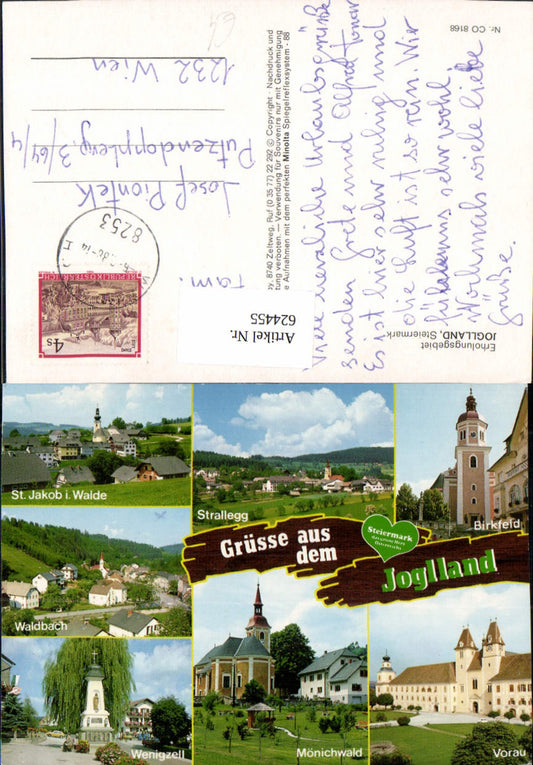 Nr. CO 8168
Erholungsgebiet
JOGLLAND, Steiermark
Viele herzliche Urlaubsgrüße
senden Grete und Alfred
Es ist hier sehr ruhig und
die Luft ist so rein. Wir
fühlen uns sehr wohl.
Nochmals viele liebe
Grüße.
8740 Zeltweg, Ruf (0 35 77) 22 292 © Copyright · Nachdruck und
tung verboten. — Verwendung für Souvenirs nur mit Genehmigung
e Aufnahmen mit dem perfekten Minolta Spiegelreflexsystem - 88
Artikel Nr.
624455
Fam.
Josef Piontek
Putzendopplerg. 3/64/4
1232 Wien
8253
REPUBLIK ÖSTERREICH
4 S
St. Jakob i. Walde
Strallegg
Birkfeld
Waldbach
Grüsse aus
dem
Steiermark
das grüne Herz
Österreichs
Joglland
Wenigzell
Mönichwald
Vorau